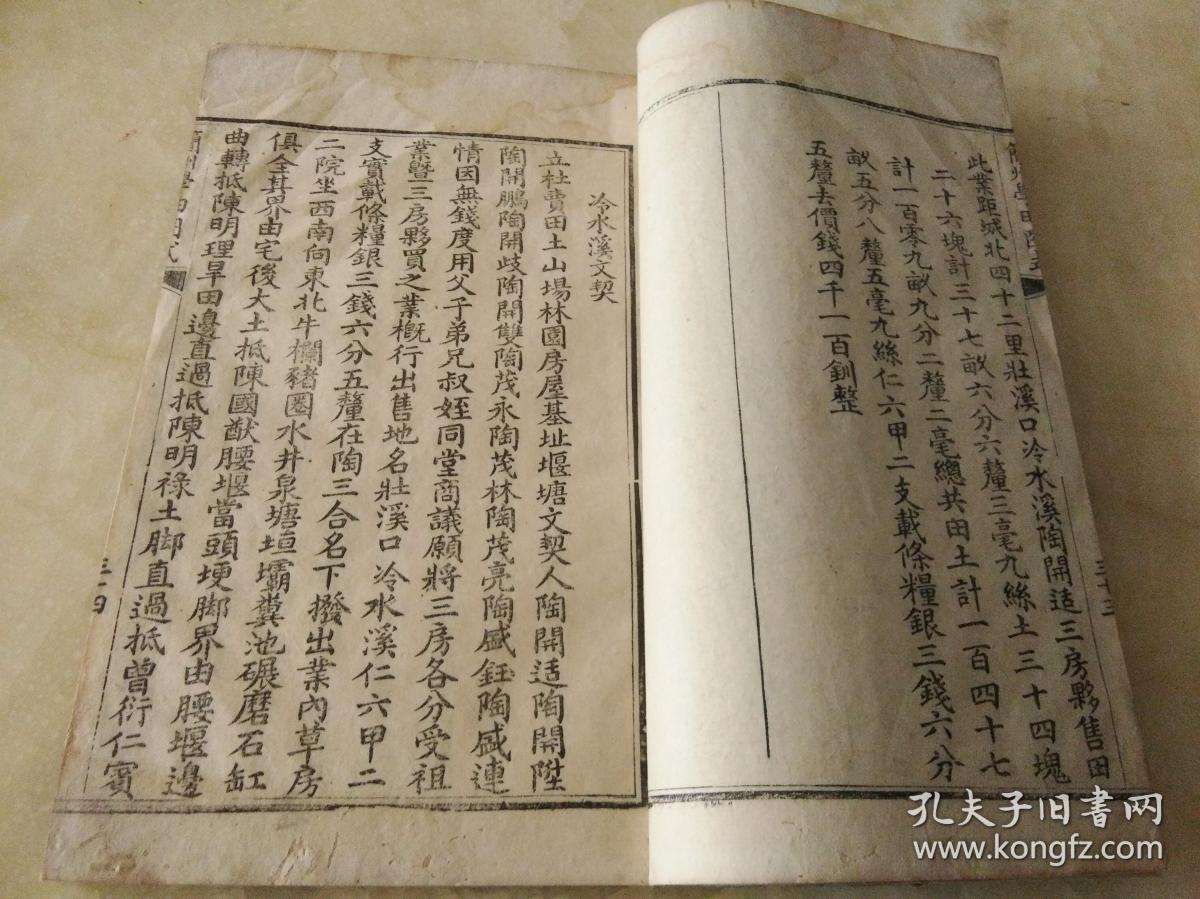 此業距城北四十二里壯溪口冷水溪陶開适三房夥售田
二十六塊計三十七畝六分六釐三毫九絲土三十四塊
計一百零九畝九分二釐二毫總共田土計一百四十七
畝五分八釐五毫九絲仁六甲二支載條糧銀三錢六分
五釐去價錢四千一百釧整
三十三
冷水溪文契
立杜賣田土山場林園房屋基址堰塘文契人陶開适陶開陞
陶開鵬陶開歧陶開雙陶茂永陶茂林陶茂亮陶盛鈺陶盛連
情因無錢度用父子弟兄叔姪同堂商議願將三房各分受祖
業暨三房夥買之業概行出售地名壯溪口冷水溪仁六甲二
支實載條糧銀三錢六分五釐在陶三合名下撥出業內草房
二院坐西南向東北牛欄豬圈水井泉塘垣壩糞池碾磨石缸
俱全其界由宅後大土抵陳國猷腰堰當頭埂脚界由腰堰邊
曲轉抵陳明理旱田邊直過抵陳明祿土脚直過抵曾衍仁賓
三十四
孔夫子旧书网
www.kongfz.com